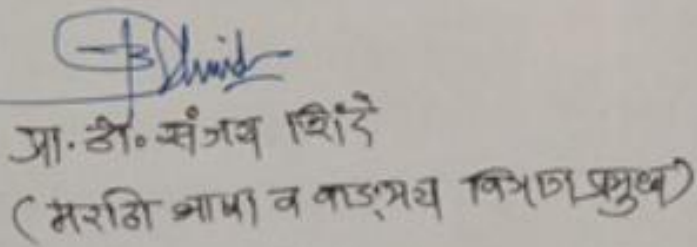 प्रा. डॉ. संजय शिंदे
(मराठी भाषा व वाङ्मय विभाग प्रमुख)